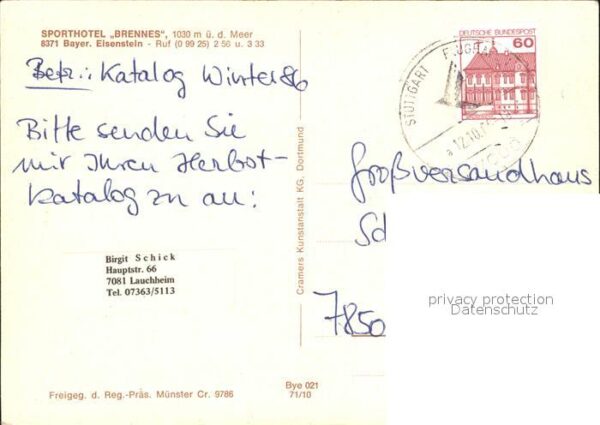 SPORTHOTEL „BRENNES", 1030 m ü. d. Meer
8371 Bayer. Eisenstein - Ruf (0 99 25) 2 56 u. 3 33
Betr.: Katalog Winter 86
Bitte senden Sie
mir Ihren Herbst-
katalog zu an:
Birgit Schick
Hauptstr. 66
7081 Lauchheim
Tel. 07363/5113
Freigeg. d. Reg.-Präs. Münster Cr. 9786
Bye 021
71/10
Cramers Kunstanstalt KG, Dortmund
DEUTSCHE BUNDESPOST
60
STUTTGART
12.10.
Großversandhaus
Sc
7850
privacy protection
Datenschutz